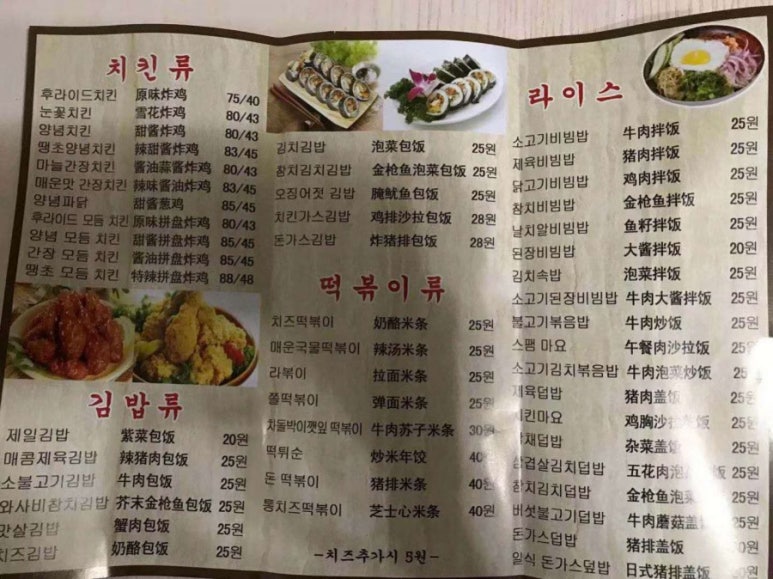 치킨류
후라이드치킨 原味炸鸡 75/40
눈꽃치킨 雪花炸鸡 80/43
양념치킨 甜酱炸鸡 80/43
땡초양념치킨 辣甜酱炸鸡 83/45
마늘간장치킨 酱油蒜酱炸鸡 80/43
매운맛 간장치킨 辣味酱油炸鸡 83/45
양념파닭 甜酱葱鸡 85/45
후라이드 모듬 치킨 原味拼盘炸鸡 80/43
양념 모듬 치킨 甜酱拼盘炸鸡 85/45
간장 모듬 치킨 酱油拼盘炸鸡 85/45
땡초 모듬 치킨 特辣拼盘炸鸡 88/48
김밥류
제일김밥 紫菜包饭 20원
매콤제육김밥 辣猪肉包饭 25원
소불고기김밥 牛肉包饭 25원
와사비참치김밥 芥末金枪鱼包饭 25원
맛살김밥 蟹肉包饭 25원
치즈김밥 奶酪包饭 25원
김치김밥 泡菜包饭 25원
참치김치김밥 金枪鱼泡菜包饭 25원
오징어젓 김밥 腌鱿鱼包饭 25원
치킨가스김밥 鸡排沙拉包饭 28원
돈가스김밥 炸猪排包饭 28원
떡볶이류
치즈떡볶이 奶酪米条 25원
매운국물떡볶이 辣汤米条 25원
라볶이 拉面米条 25원
쫄떡볶이 弹面米条 25원
차돌박이깻잎 떡볶이 牛肉苏子米条 30원
떡튀순 炒米年饺 40원
돈 떡볶이 猪排米条 40원
통치즈떡볶이 芝士心米条 40원
-치즈추가시 5원-
라이스
소고기비빔밥 牛肉拌饭 25원
제육비빔밥 猪肉拌饭 25원
닭고기비빔밥 鸡肉拌饭 25원
참치비빔밥 金枪鱼拌饭 25원
날치알비빔밥 鱼籽拌饭 25원
된장비빔밥 大酱拌饭 20원
김치속밥 泡菜拌饭 25원
소고기된장비빔밥 牛肉大酱拌饭 25원
불고기볶음밥 牛肉炒饭 25원
스팸 마요 午餐肉沙拉饭 25원
소고기김치볶음밥 牛肉泡菜炒饭 25
제육덮밥 猪肉盖饭 25원
치킨마요 鸡胸沙拉 25원
잡채덮밥 杂菜盖饭 25원
삼겹살김치덮밥 五花肉泡 25원
참치김치덮밥 金枪鱼泡菜 25원
버섯불고기덮밥 牛肉蘑菇盖
돈가스덮밥 猪排盖饭
일식 돈가스덮밥 日式猪排盖